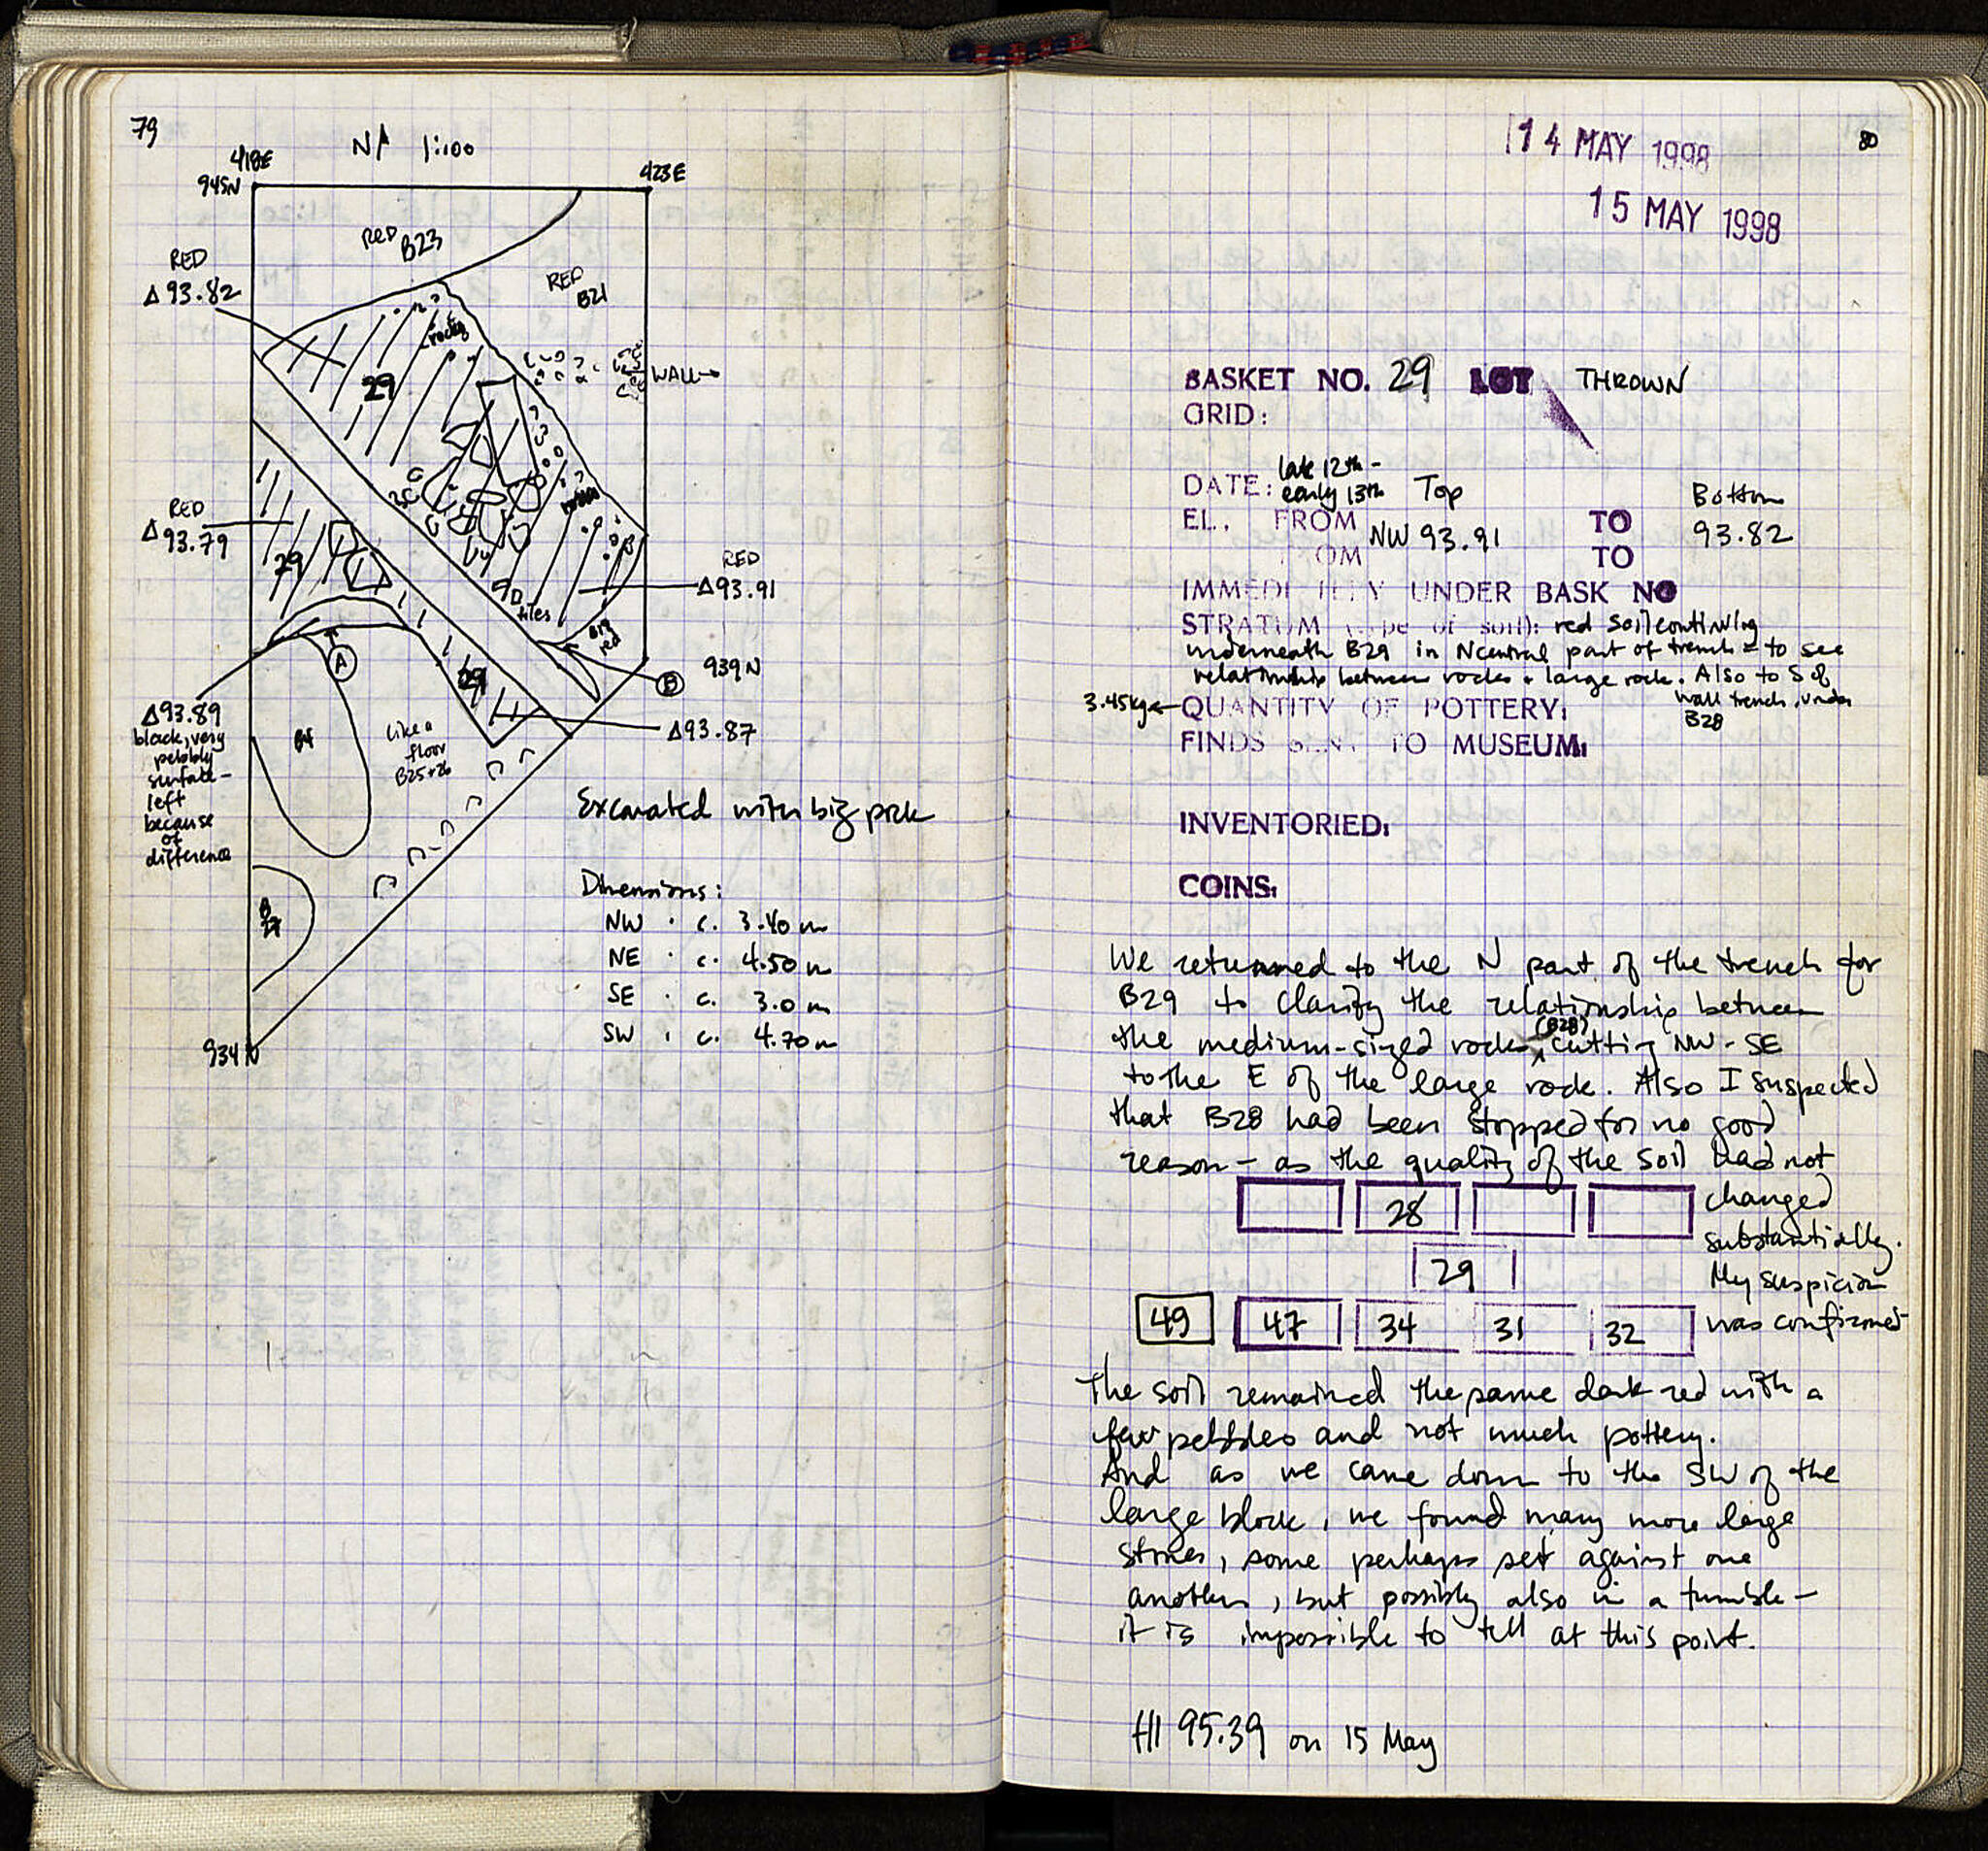 79
N 1:100
418E
945N
423E
RED B23
RED
Δ 93.82
RED
B21
rocky
WALL→
29
RED
Δ 93.79
29
RED
Δ93.91
tiles
B19
red
A
B
939N
29
Δ93.89
black, very
pebbly
surface –
left
because
of
difference
like a
floor
B25+26
Δ93.87
Excavated with big pick
Dimensions:
NW · c. 3.40 m
NE · c. 4.50 m
SE · c. 3.0 m
SW · c. 4.70 m
934N
80
14 MAY 1998
15 MAY 1998
BASKET NO. 29 LOT THROWN
GRID:
DATE: late 12th –
early 13th Top Bottom
EL. FROM NW 93.91 TO 93.82
FROM TO
IMMEDIATELY UNDER BASK NO
STRATUM (type of soil): red soil continuing
underneath B29 in N central part of trench – to see
relationship between rocks + large rock. Also to S of
wall trench, under
B28
3.45kg ← QUANTITY OF POTTERY:
FINDS SENT TO MUSEUM:
INVENTORIED:
COINS:
We returned to the N part of the trench for
B29 to clarify the relationship between
the medium-sized rocks (B28) cutting NW-SE
to the E of the large rock. Also I suspected
that B28 had been stopped for no good
reason – as the quality of the soil had not
changed
substantially.
My suspicion
was confirmed
28
29
49 47 34 31 32
The soil remained the same dark red with a
few pebbles and not much pottery.
And as we came down to the SW of the
large block, we found many more large
stones, some perhaps set against one
another, but possibly also in a tumble –
it is impossible to tell at this point.
HI 95.39 on 15 May